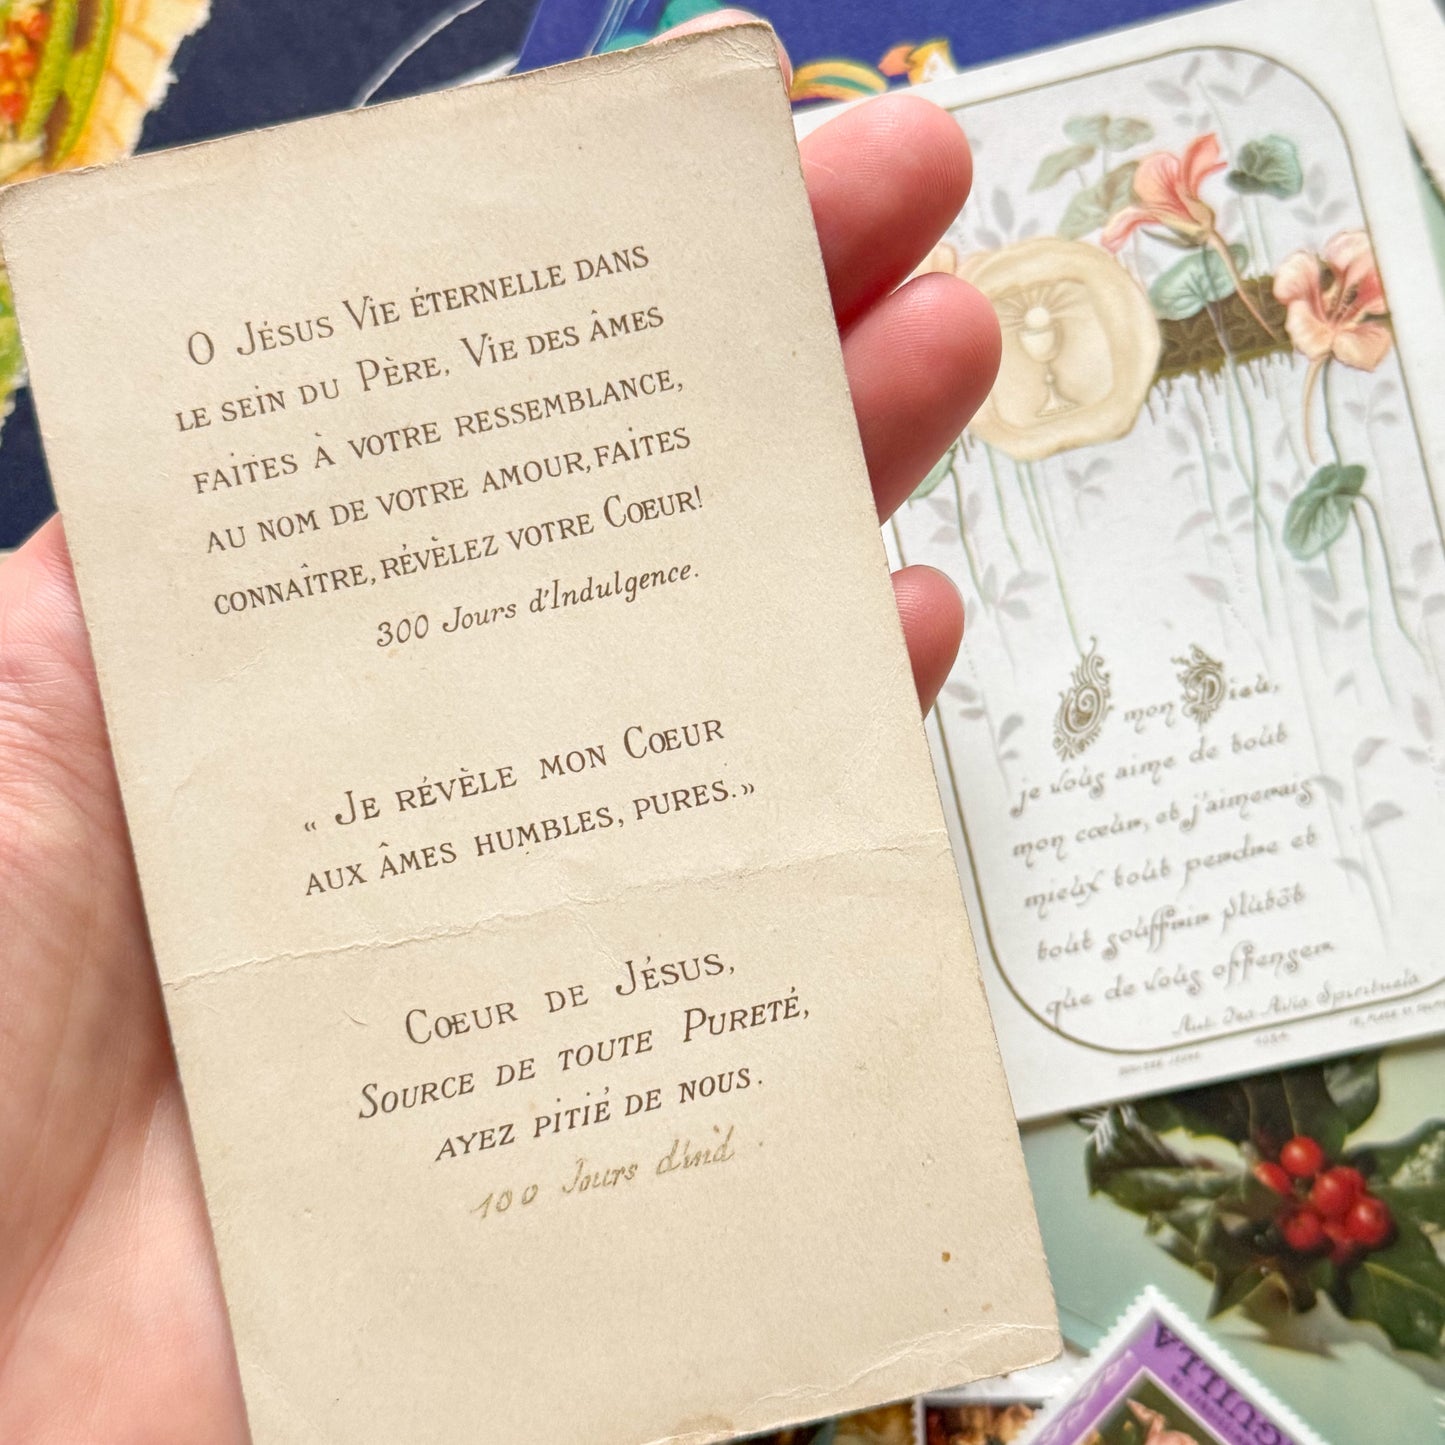 O Jésus Vie éternelle dans
le sein du Père, Vie des âmes
faites à votre ressemblance,
au nom de votre amour, faites
connaître, révèlez votre Coeur!
300 Jours d'Indulgence.
« Je révèle mon Coeur
aux âmes humbles, pures.»
Coeur de Jésus,
Source de toute Pureté,
ayez pitié de nous.
100 Jours d'ind .
O mon Dieu,
je vous aime de tout
mon cœur, et j'aimerais
mieux tout perdre et
tout souffrir plutôt
que de vous offenser
GUILLA